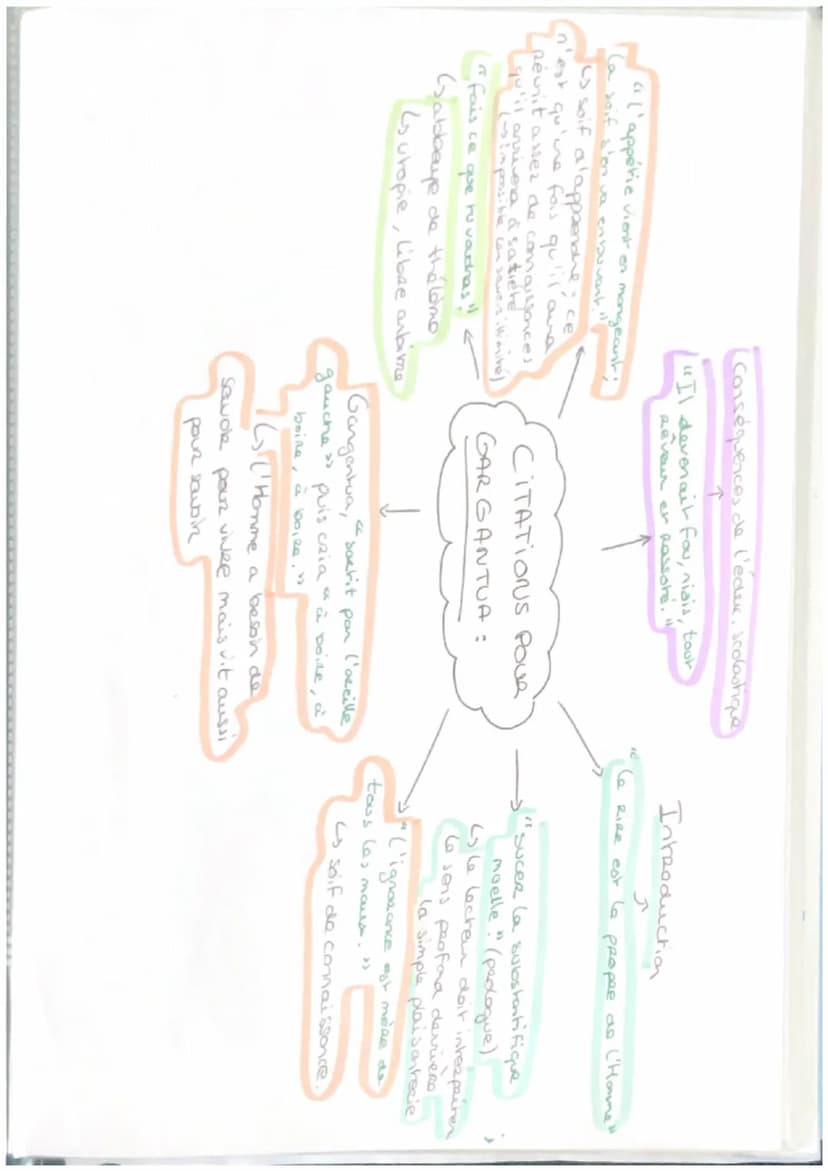 CITATIONS POUR
GARGANTUA :
Conséquences de l'éduc. scolastique
"Il devenait fou, niais, tout
rêveur et rassoté."
"l'appétit vient en mangeant ;
la soif s'en va en buvant."
↳ soif d'apprendre : ce
n'est qu'une fois qu'il aura
réunit assez de connaissances
qu'il arrivera à satiété
(→ impossible car savoir illimité)
"fais ce que tu vadras."
↳ abbaye de thélème
↳ utopie, libre arbitre
Gargantua, "sortit par l'oreille
gauche" puis cria "à boire, à
boire, à boire."
↳ l'Homme a besoin de
savoir pour vivre mais vit aussi
pour savoir
Introduction
"le rire est le propre de l'Homme"
"sucer la substantifique
moelle." (prologue)
↳ le lecteur doit interpréter
le sens profond derrière
la simple plaisanterie
"l'ignorance est mère de
tous les maux."
↳ soif de connaissance.